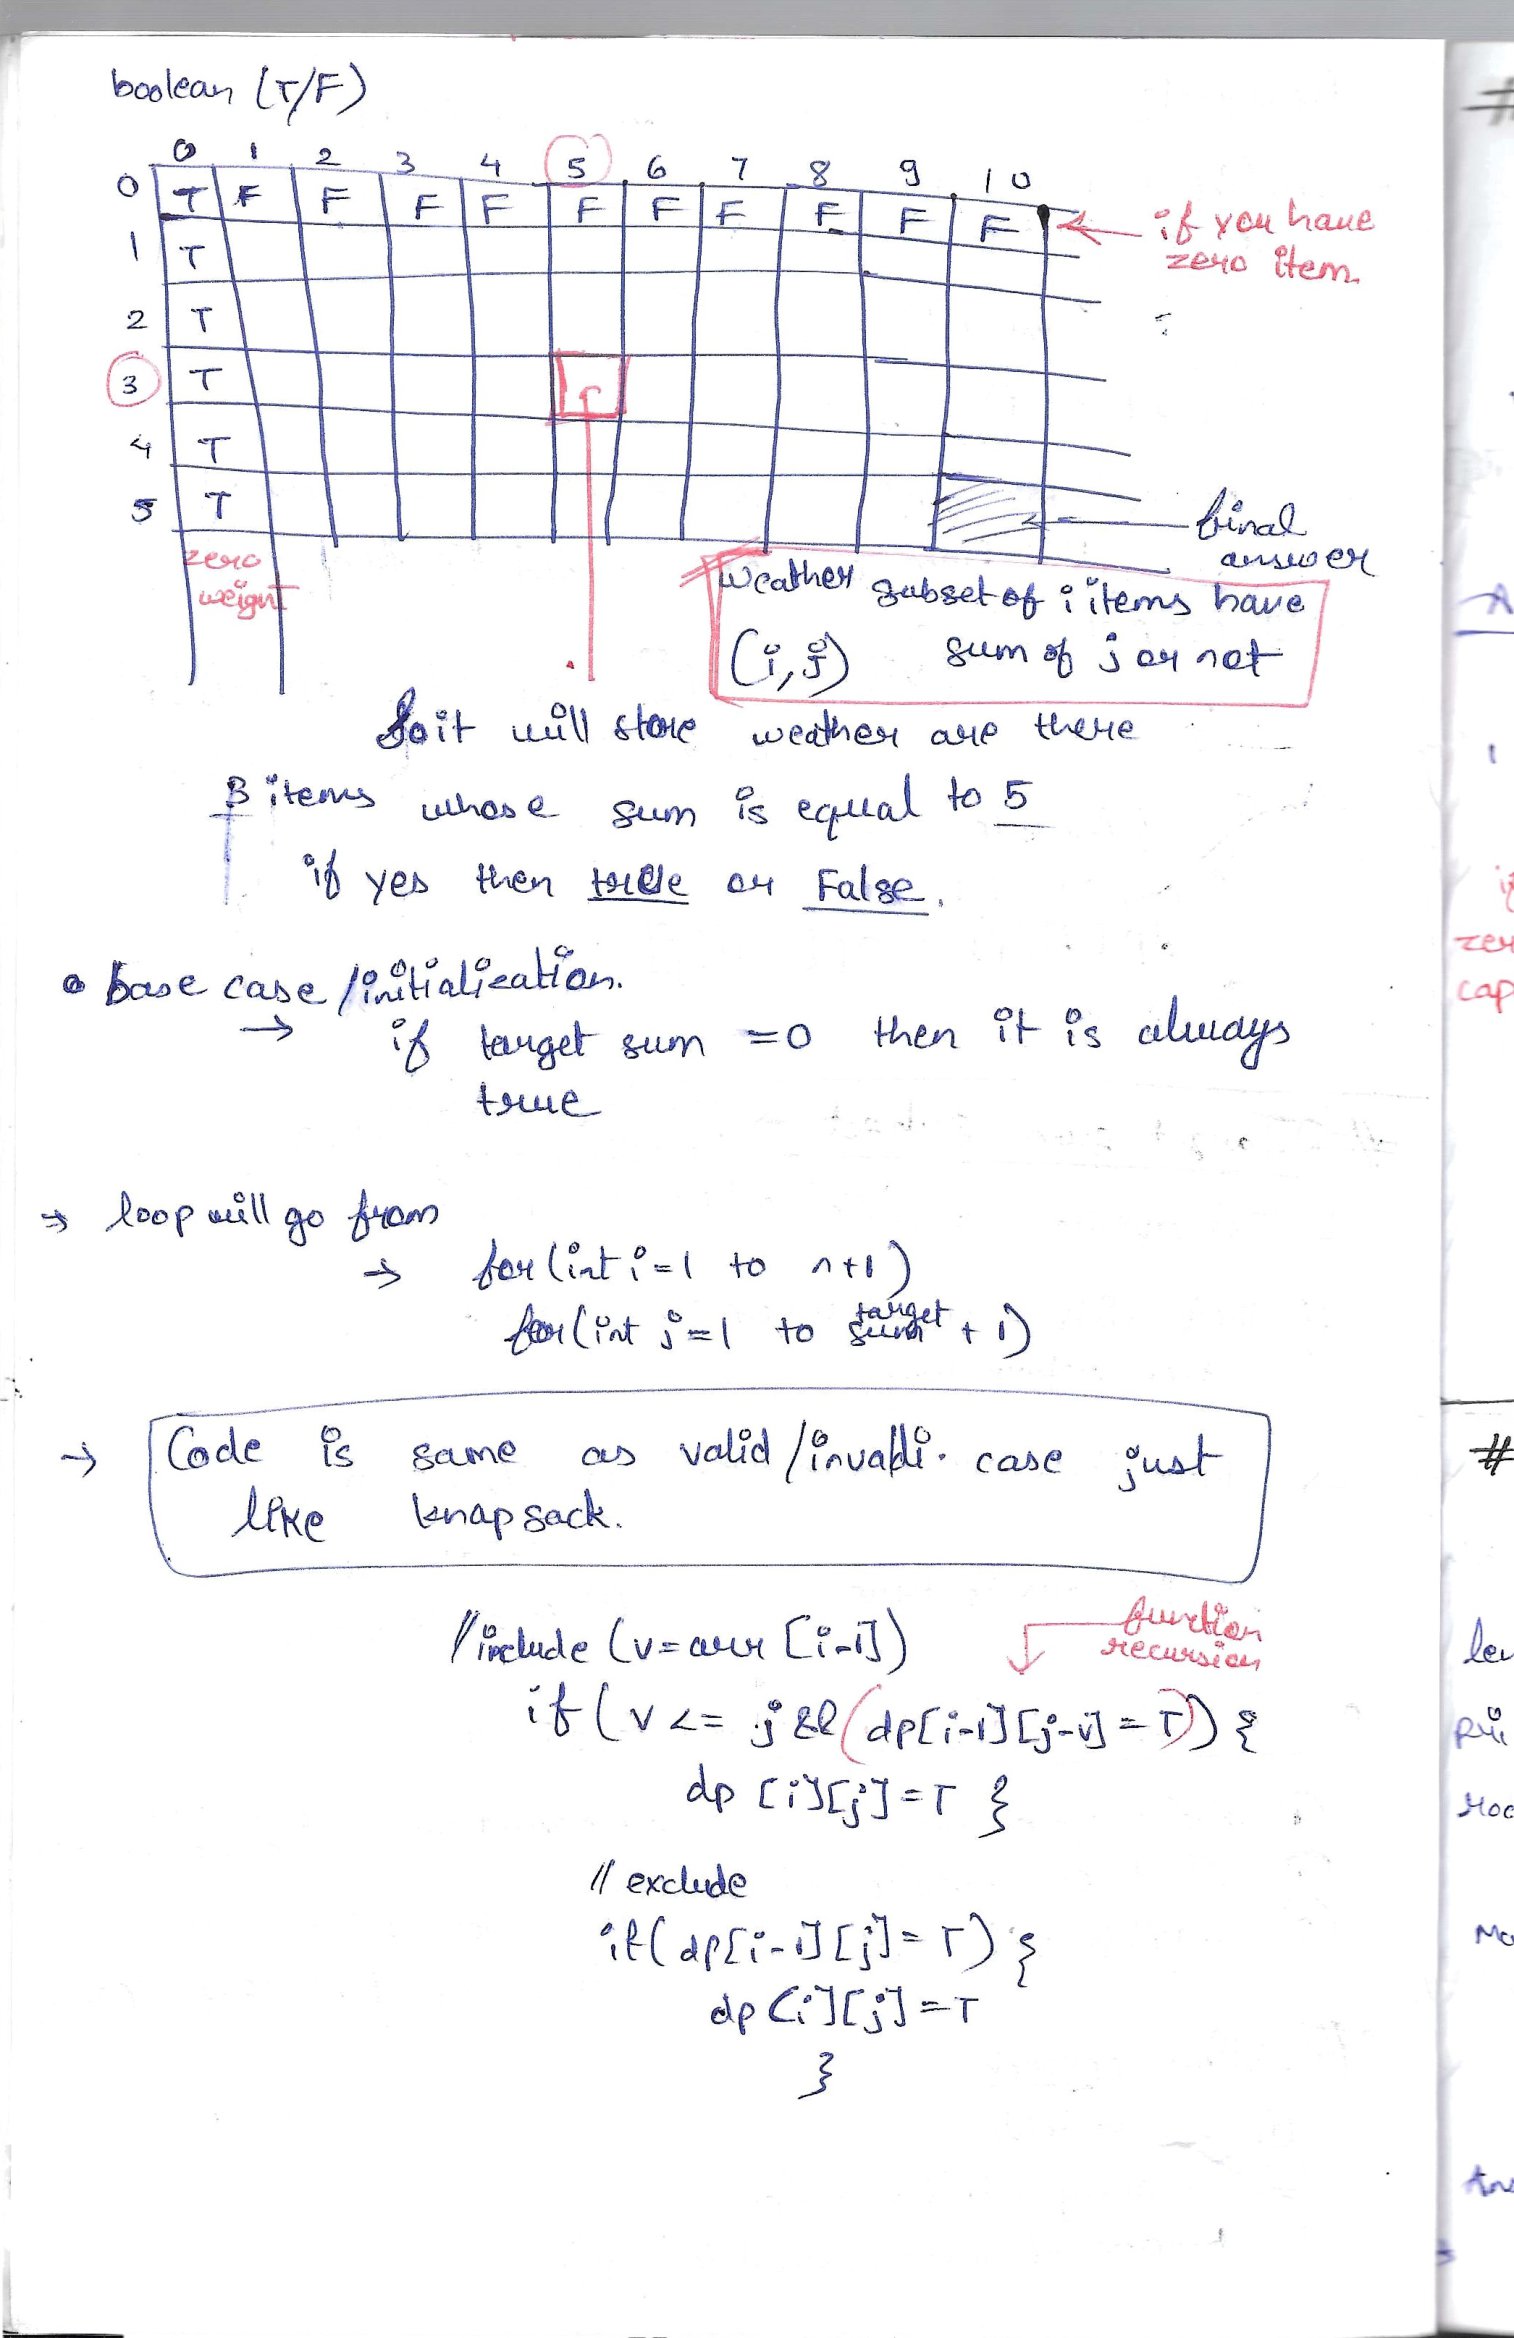 boolean (T/F)
0 1 2 3 4 5 6 7 8 9 10
0 T F F F F F F F F F F
if you have
zero item
1 T
2 T
3 T
4 T
5 T
final
answer
zero
weight
weather subset of i items have
(i, j) sum of j or not
So it will store weather are there
3 items whose sum is equal to 5
if yes then true or False.
• base case / initialization.
→ if target sum = 0 then it is always
true
→ loop will go from
→ for (int i = 1 to n+1)
for (int j = 1 to target sum + 1)
→ Code is same as valid / invali. case just
like knapsack.
function
recursion
// include (v = arr [i-1])
if ( v <= j && (dp[i-1][j-v] = T)) {
dp [i][j] = T }
// exclude
if( dp[i-1][j] = T) {
dp [i][j] = T
}
#
A
1
zer
cap
#